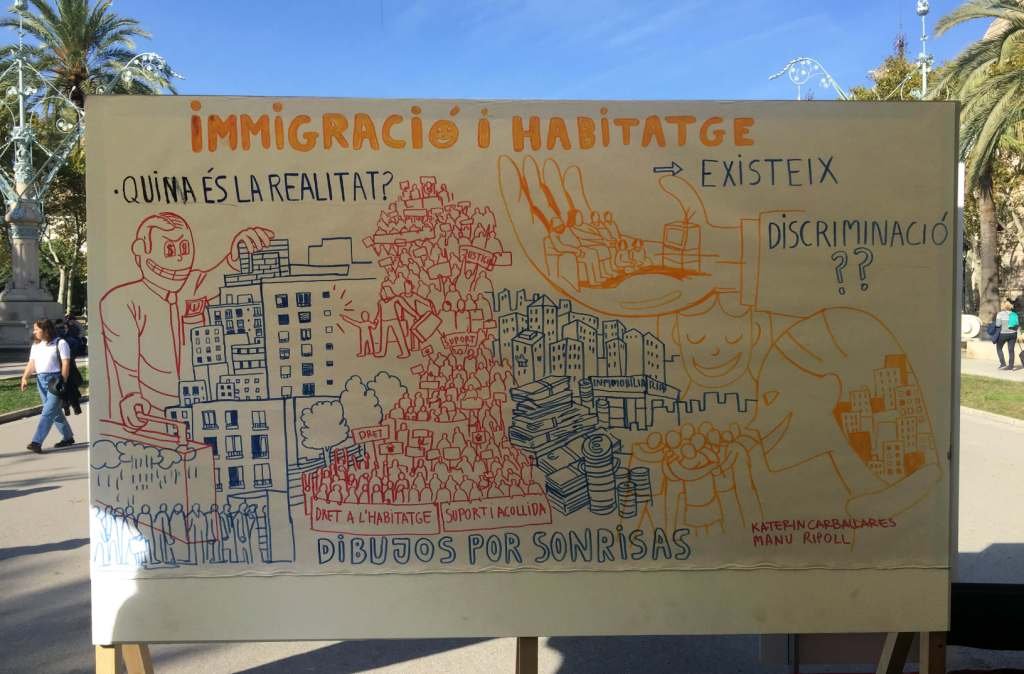 IMMIGRACIÓ I HABITATGE
·QUINA ÉS LA REALITAT?
⇨ EXISTEIX
DISCRIMINACIÓ
??
JUSTICIA
SUPORT
INMOBILIARIA
DRET
DRET A L'HABITATGE
SUPORT I ACOLLIDA
KATERIN CARBALLARES
MANU RIPOLL
DIBUJOS POR SONRISAS